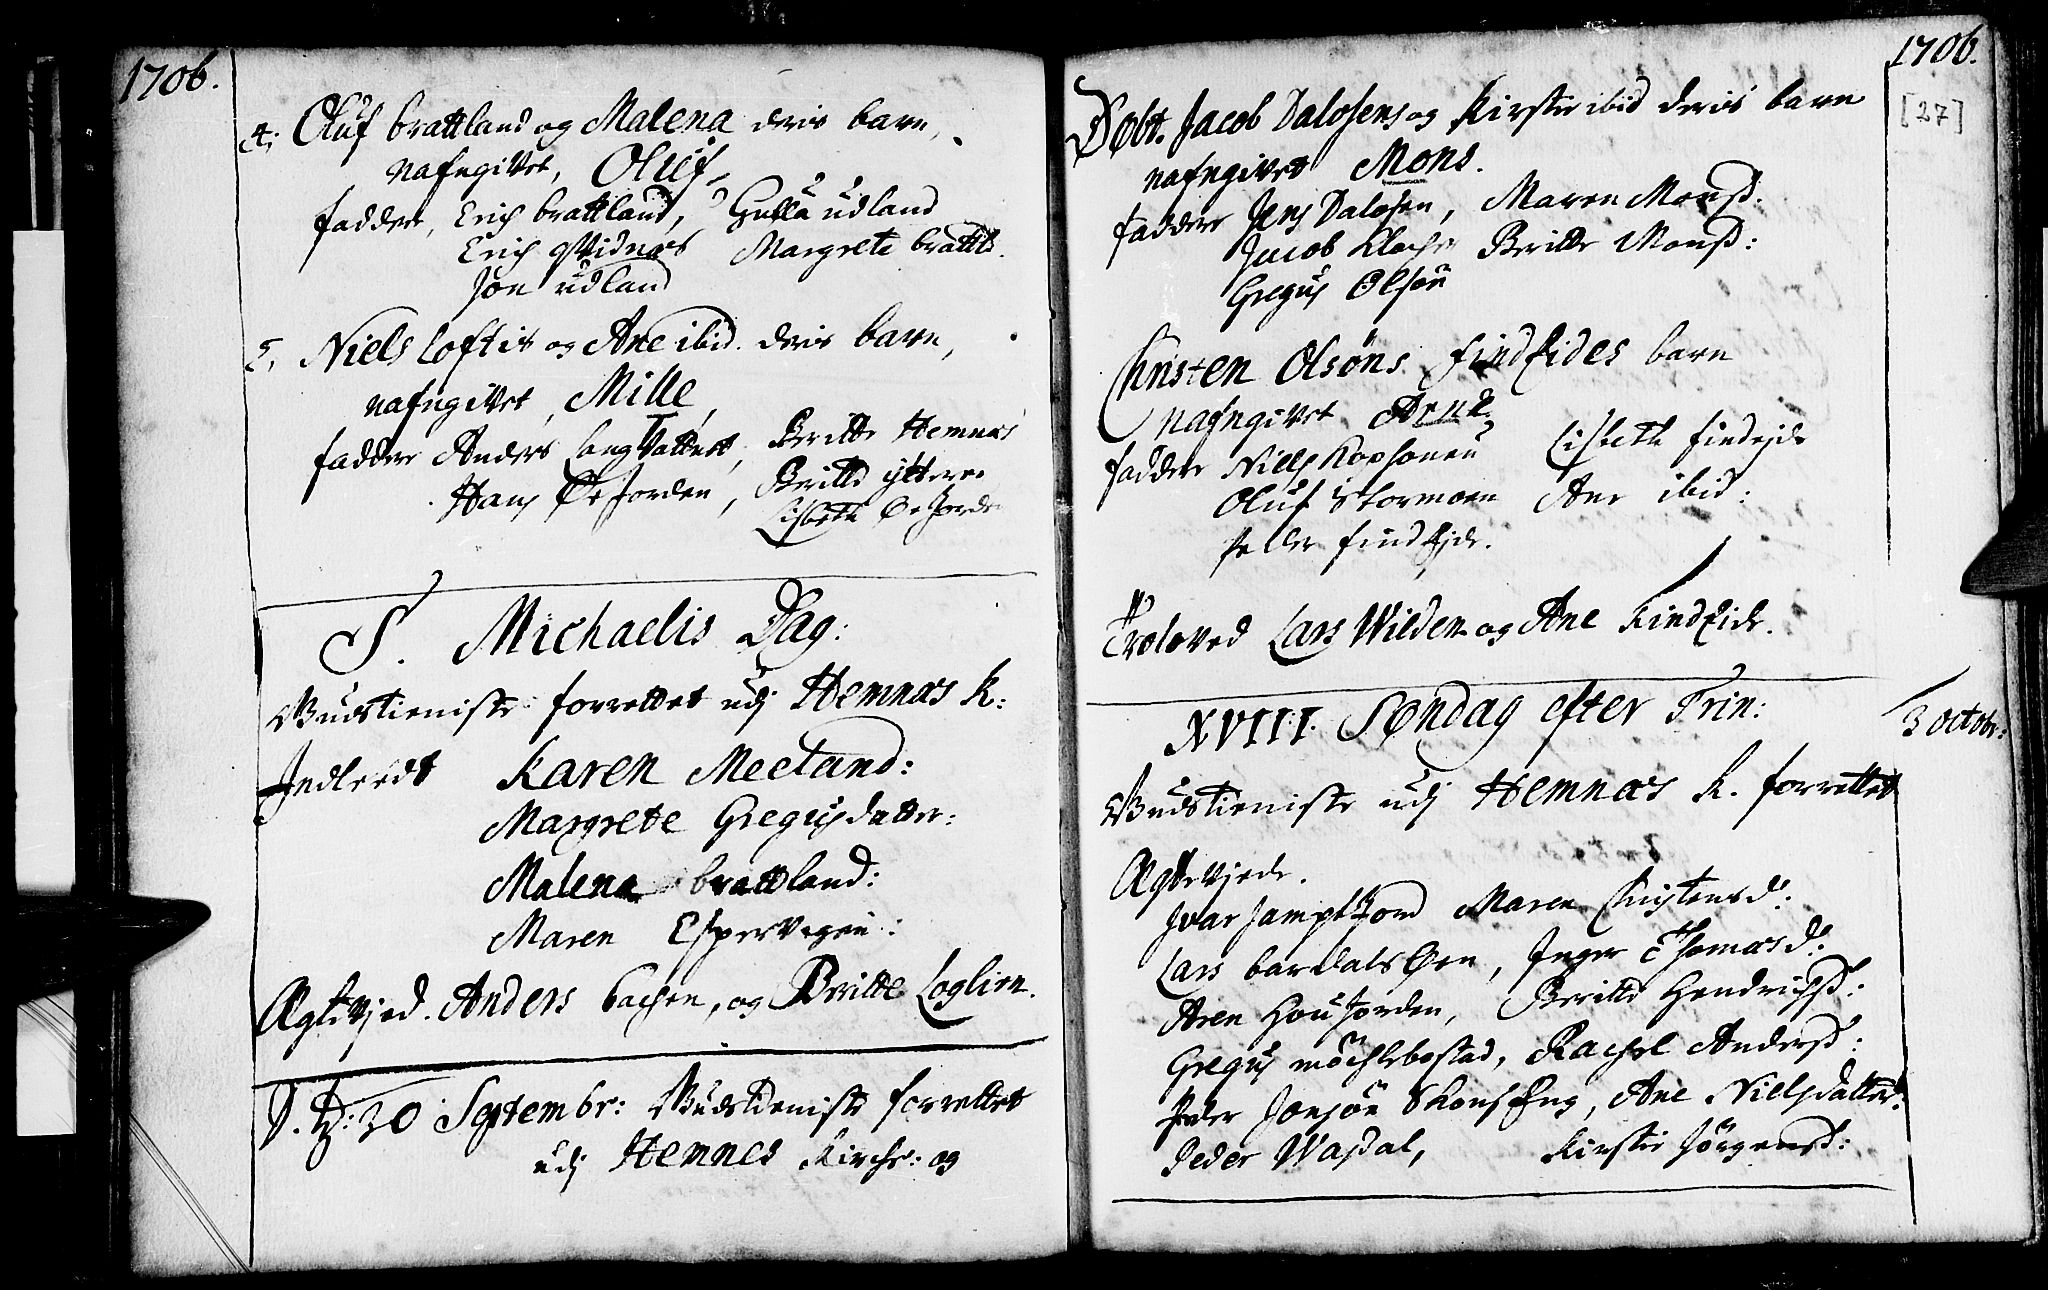 1706.
4. Oluf brattland og Malena deris barn,
Nafngivet, Oluf,
faddere, Erich brattland, Gulla udland
Erich Widnæs Margrete brattl.
Jon udland
5. Niels Loftis og Ane ibid. deris barn,
nafngivet, Mille,
faddere Anders LangVattnet, Britte Hemnæs
Hans ØrJorden, Britte ytteren
Lisbeth ØrJorde
S. Michaelis Dag:
Gudstieniste forrettet udj Hemnæs K:
Indleedt Karen Meeland:
Margrete Gregusdatter:
Malena brattland:
Maren Espervegen:
Ægteviet. Anders bachen, og Britte Loglien.
D. 30 Septembr: Gudstieniste forrettet
udj Hemnes Kirche: og
1706.
[27]
Døbt. Jacob Dalosens og Kirstie ibid deris barn
nafngivet Mons.
faddere Jens Dalosen, Maren Monsd.
Jacob Britte Monsd:
Gregus Olsøn
Christen Olsøns Findeides barn
Nafngivet
faddere Niels Lisbeth findejde
Oluf Stormoen Ane ibid:
Peder findejde.
Troloved Lars Wilden og Ane Findeide.
XVIII. Søndag efter Trin:
3 octobr:
Gudstieniste udj Hemnæs K. forrettet
Ægteviede.
Ivar Jamptjord Maren Christensd:
Lars bardalsØen, Inger Thomæsd:
Aren HouJorden, Britte Hendrichsd:
Gregus möchlebostad, Rachel Andersd:
Peder Jonsøn Ane Nielsdatter.
Peder Wasdal, Kirstie Jørgensd: